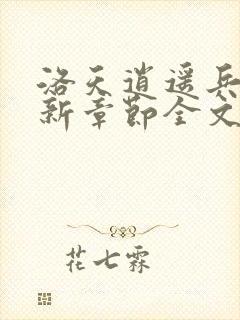 洛天逍遥兵
新章节全文
花七霖